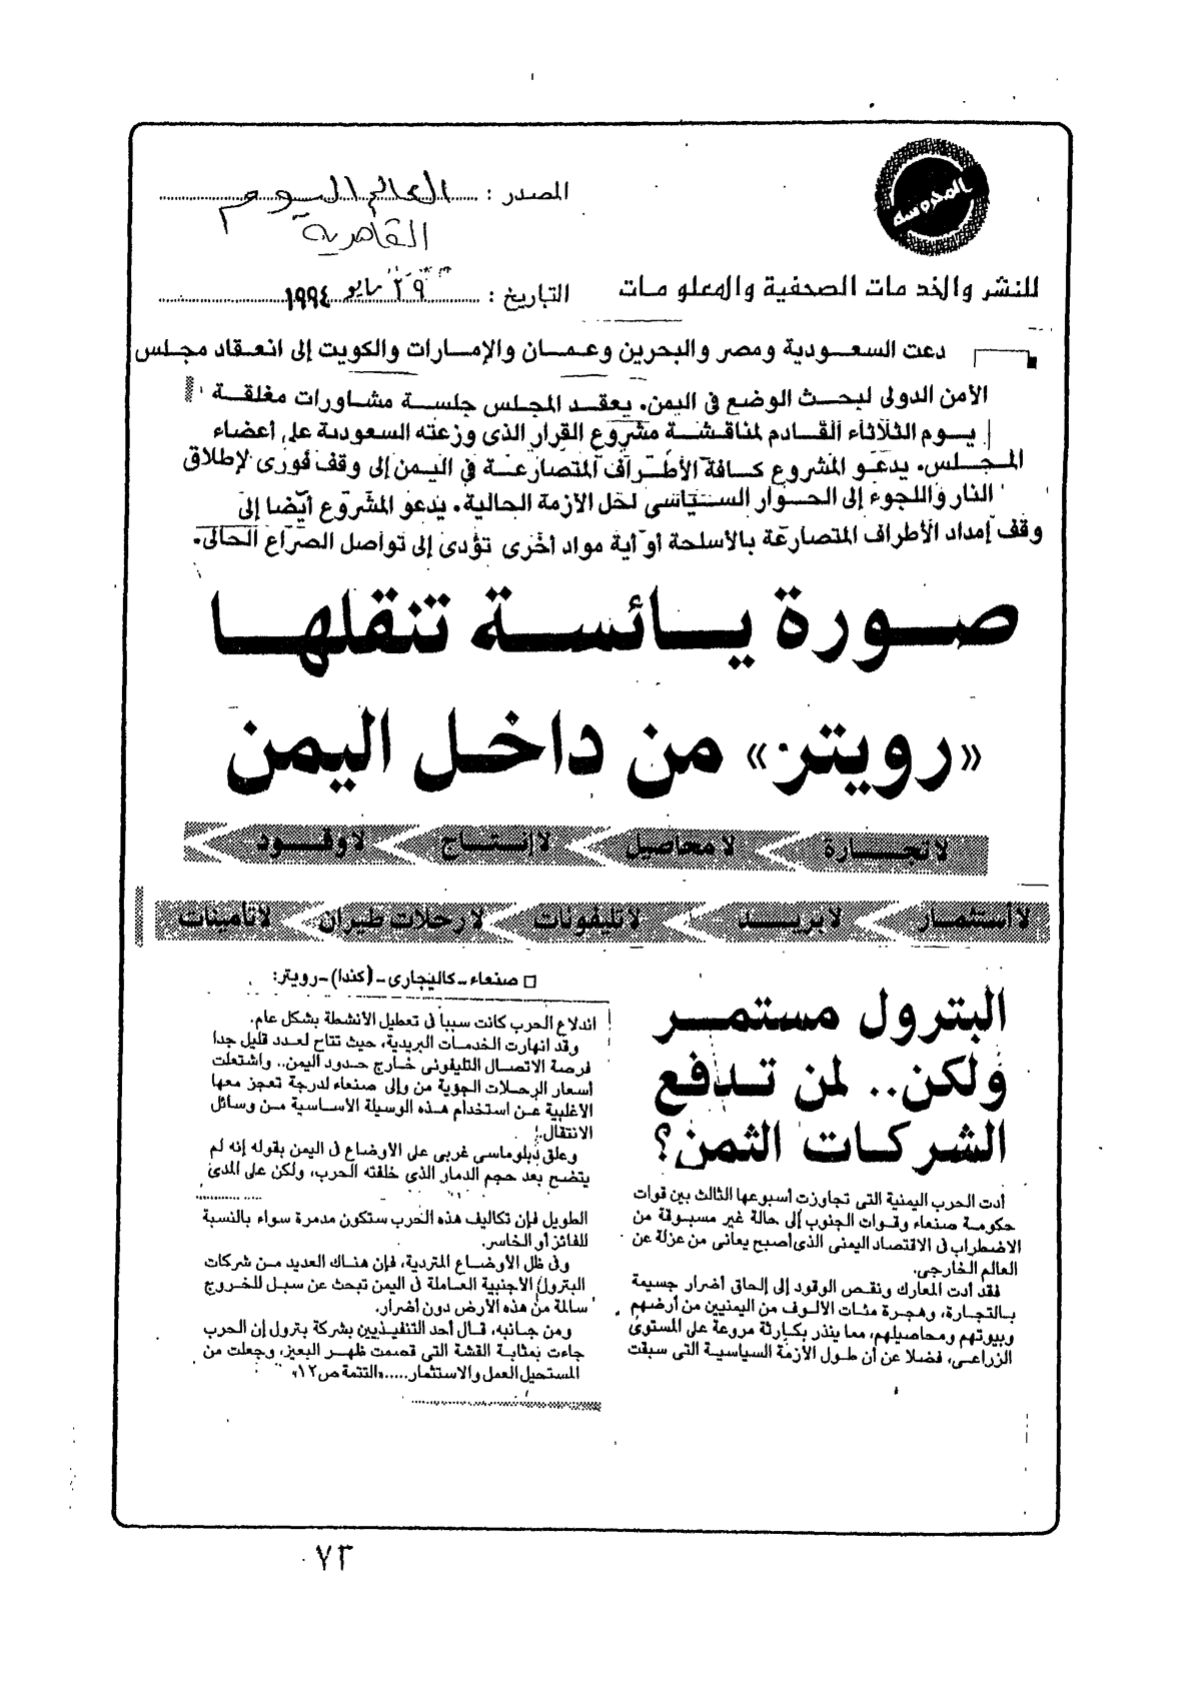 المحروسة
المصدر : العالم اليوم
القاهرية
للنشر والخدمات الصحفية والمعلومات
التاريخ : ٢٩ مايو ١٩٩٤
دعت السعودية ومصر والبحرين وعمان والإمارات والكويت إلى انعقاد مجلس
الأمن الدولى لبحث الوضع فى اليمن. يعقد المجلس جلسة مشاورات مغلقة
يوم الثلاثاء القادم لمناقشة مشروع القرار الذى وزعته السعودية على أعضاء
المجلس. يدعو المشروع كافة الأطراف المتصارعة فى اليمن إلى وقف فورى لإطلاق
النار واللجوء إلى الحوار السياسى لحل الأزمة الحالية. يدعو المشروع أيضا إلى
وقف إمداد الأطراف المتصارعة بالأسلحة أو أية مواد أخرى تؤدى إلى تواصل الصراع الحالى.
صورة يائسة تنقلها
«رويتر» من داخل اليمن
لا تجارة لا محاصيل لا إنتاج لا وقود
لا أستثمار لا بريد لا تليفونات لا رحلات طيران لا تأمينات
البترول مستمر
ولكن.. لمن تدفع
الشركات الثمن؟
أدت الحرب اليمنية التى تجاوزت أسبوعها الثالث بين قوات
حكومة صنعاء وقوات الجنوب إلى حالة غير مسبوقة من
الاضطراب فى الاقتصاد اليمنى الذى أصبح يعانى من عزلة عن
العالم الخارجى.
فقد أدت المعارك ونقص الوقود إلى إلحاق أضرار جسيمة
بالتجارة، وهجرة مئات الألوف من اليمنيين من أرضهم
وبيوتهم ومحاصيلهم، مما ينذر بكارثة مروعة على المستوى
الزراعى، فضلا عن أن طول الأزمة السياسية التى سبقت
□ صنعاء - كاليجارى - (كندا) - رويتر:
اندلاع الحرب كانت سببا فى تعطيل الأنشطة بشكل عام.
وقد انهارت الخدمات البريدية، حيث تتاح لعدد قليل جدا
فرصة الاتصال التليفونى خارج حدود اليمن.. واشتعلت
أسعار الرحلات الجوية من وإلى صنعاء لدرجة تعجز معها
الأغلبية عن استخدام هذه الوسيلة الأساسية من وسائل
الانتقال.
وعلق دبلوماسى غربى على الأوضاع فى اليمن بقوله إنه لم
يتضح بعد حجم الدمار الذى خلفته الحرب، ولكن على المدى
الطويل فإن تكاليف هذه الحرب ستكون مدمرة سواء بالنسبة
للفائز أو الخاسر.
وفى ظل الأوضاع المتردية، فإن هناك العديد من شركات
البترول الأجنبية العاملة فى اليمن تبحث عن سبل للخروج
سالمة من هذه الأرض دون أضرار.
ومن جانبه، قال أحد التنفيذيين بشركة بترول إن الحرب
جاءت بمثابة القشة التى قصمت ظهر البعير، وجعلت من
المستحيل العمل والاستثمار..... «التتمة ص١٢»
٧٣